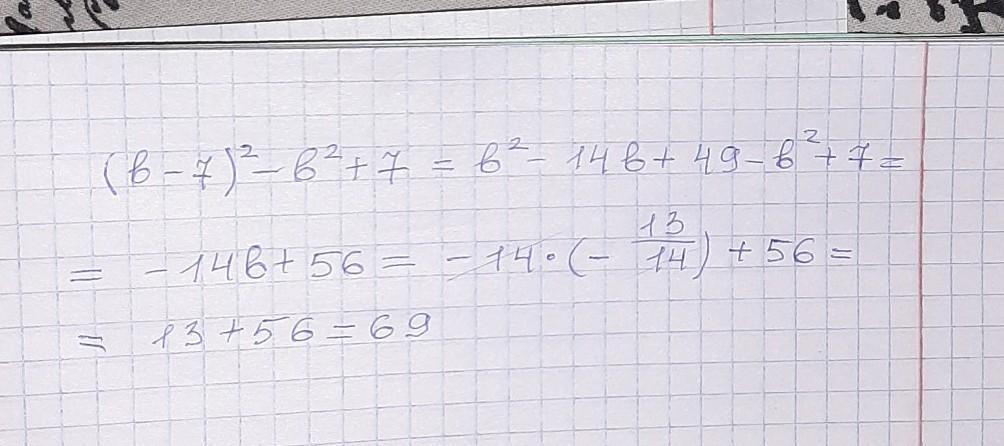 (b-7)²-b²+7=b²-14b+49-b²+7=
=-14b+56=-14·(-13/14)+56=
=13+56=69